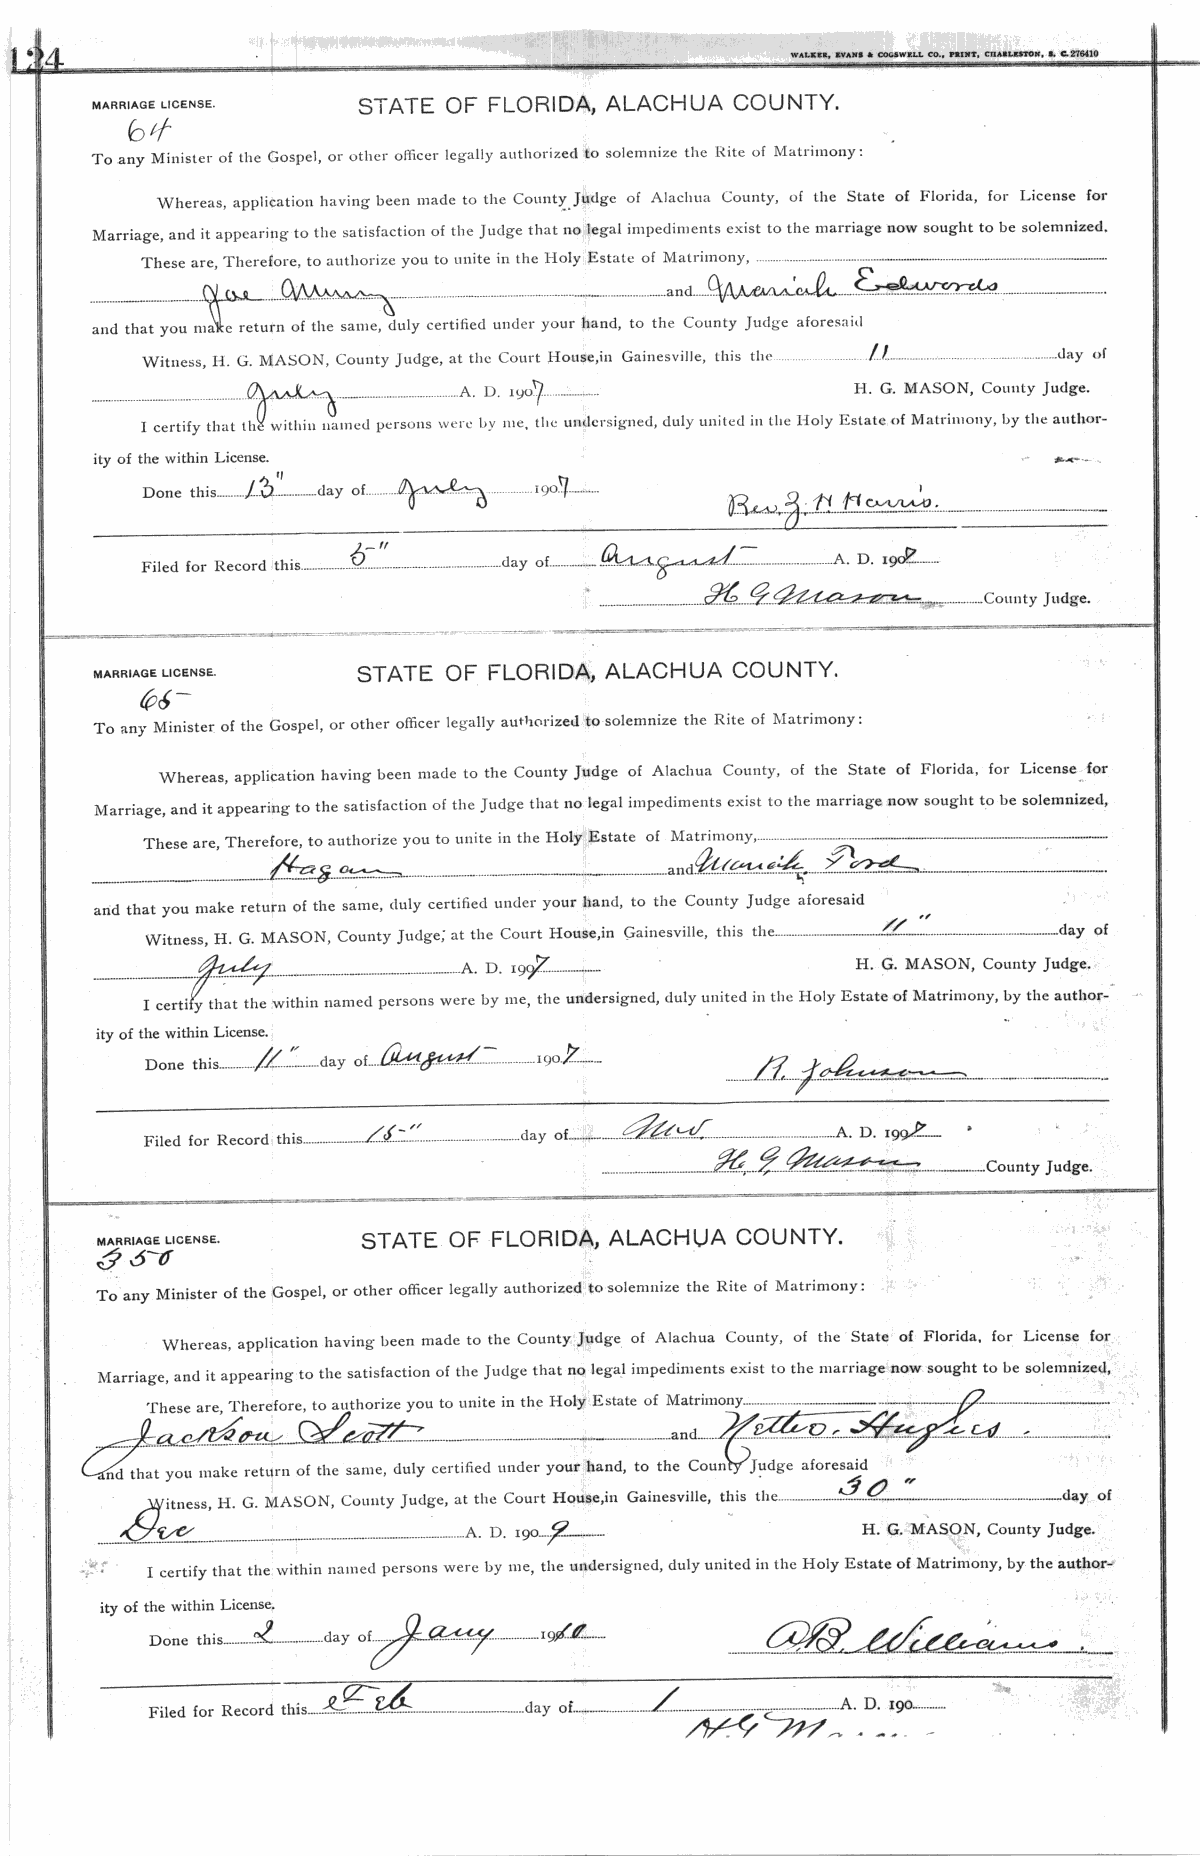 124
WALKER, EVANS & COGSWELL CO., PRINT, CHARLESTON, S. C. 276410
MARRIAGE LICENSE. STATE OF FLORIDA, ALACHUA COUNTY.
64
To any Minister of the Gospel, or other officer legally authorized to solemnize the Rite of Matrimony:
Whereas, application having been made to the County Judge of Alachua County, of the State of Florida, for License for
Marriage, and it appearing to the satisfaction of the Judge that no legal impediments exist to the marriage now sought to be solemnized.
These are, Therefore, to authorize you to unite in the Holy Estate of Matrimony,
Joe and Mariah Edwards
and that you make return of the same, duly certified under your hand, to the County Judge aforesaid
Witness, H. G. MASON, County Judge, at the Court House, in Gainesville, this the 11 day of
July A. D. 1907 H. G. MASON, County Judge.
I certify that the within named persons were by me, the undersigned, duly united in the Holy Estate of Matrimony, by the author-
ity of the within License.
Done this 13" day of July 1907
Rev. Z. H. Harris.
Filed for Record this 5" day of August A. D. 1907
H G Mason County Judge.
MARRIAGE LICENSE. STATE OF FLORIDA, ALACHUA COUNTY.
65
To any Minister of the Gospel, or other officer legally authorized to solemnize the Rite of Matrimony:
Whereas, application having been made to the County Judge of Alachua County, of the State of Florida, for License for
Marriage, and it appearing to the satisfaction of the Judge that no legal impediments exist to the marriage now sought to be solemnized,
These are, Therefore, to authorize you to unite in the Holy Estate of Matrimony,
Hagan and Mariah Ford
and that you make return of the same, duly certified under your hand, to the County Judge aforesaid
Witness, H. G. MASON, County Judge, at the Court House, in Gainesville, this the 11" day of
July A. D. 1907 H. G. MASON, County Judge.
I certify that the within named persons were by me, the undersigned, duly united in the Holy Estate of Matrimony, by the author-
ity of the within License.
Done this 11" day of August 1907
R. Johnson
Filed for Record this 15" day of Nov. A. D. 1907
H. G. Mason County Judge.
MARRIAGE LICENSE. STATE OF FLORIDA, ALACHUA COUNTY.
350
To any Minister of the Gospel, or other officer legally authorized to solemnize the Rite of Matrimony:
Whereas, application having been made to the County Judge of Alachua County, of the State of Florida, for License for
Marriage, and it appearing to the satisfaction of the Judge that no legal impediments exist to the marriage now sought to be solemnized,
These are, Therefore, to authorize you to unite in the Holy Estate of Matrimony
Jackson Scott and Hughes.
and that you make return of the same, duly certified under your hand, to the County Judge aforesaid
Witness, H. G. MASON, County Judge, at the Court House, in Gainesville, this the 30" day of
Dec A. D. 1909 H. G. MASON, County Judge.
I certify that the within named persons were by me, the undersigned, duly united in the Holy Estate of Matrimony, by the author-
ity of the within License.
Done this 2 day of Jany 1910
A.B. Williams.
Filed for Record this Feb day of 1 A. D. 190
H G